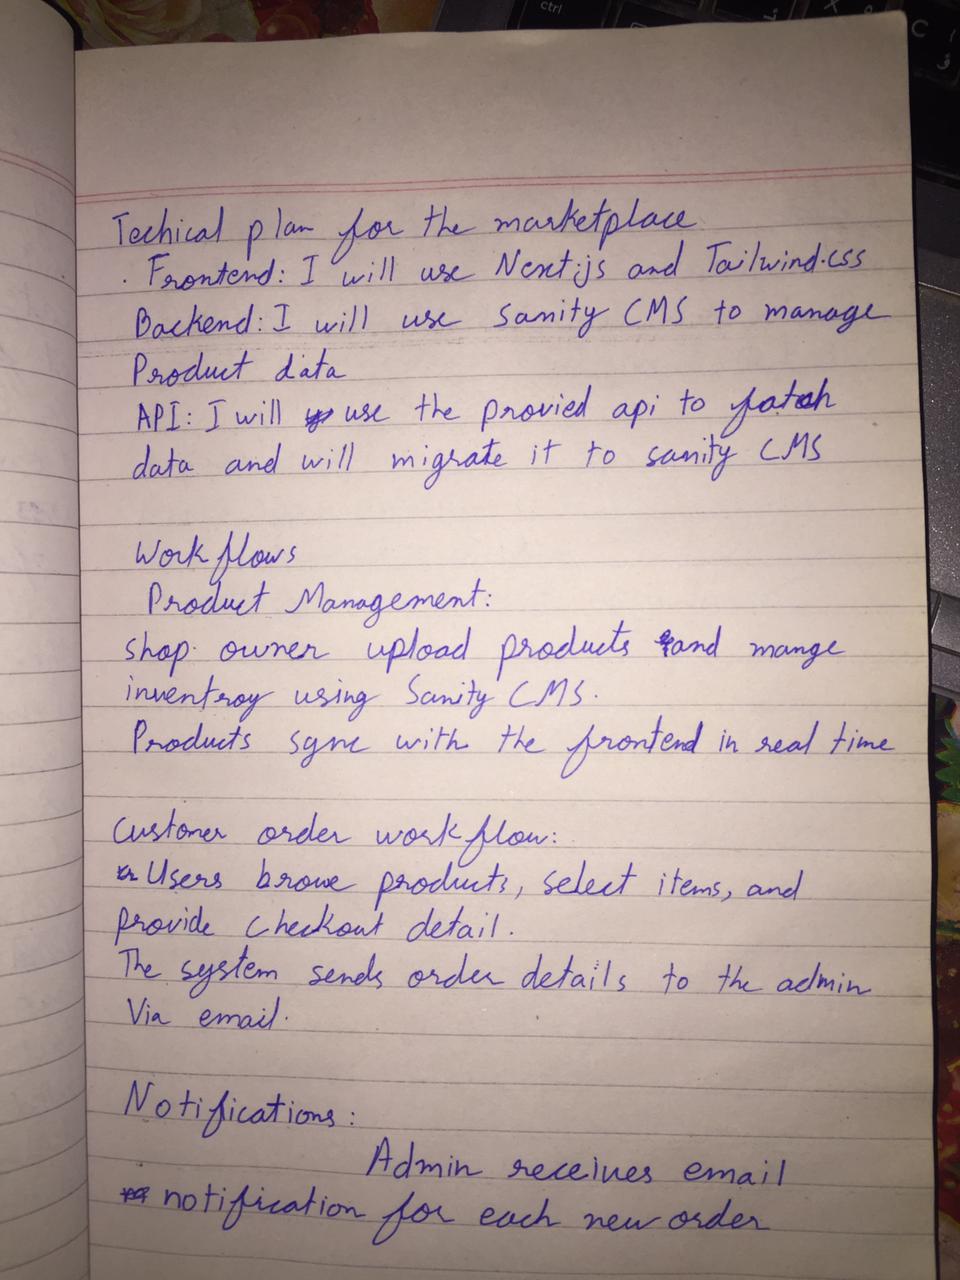 Techical plan for the marketplace
. Frontend: I will use Next.js and Tailwind.css
Backend: I will use sanity CMS to manage
Product data
API: I will use the provied api to fatch
data and will migrate it to sanity CMS
Work flows
Product Management:
shop owner upload products and mange
inventroy using Sanity CMS.
Products sync with the frontend in real time
Customer order work flow:
Users browe products, select items, and
provide checkout detail.
The system sends order details to the admin
Via email.
Notifications:
Admin receives email
notification for each new order
ctrl
X
C